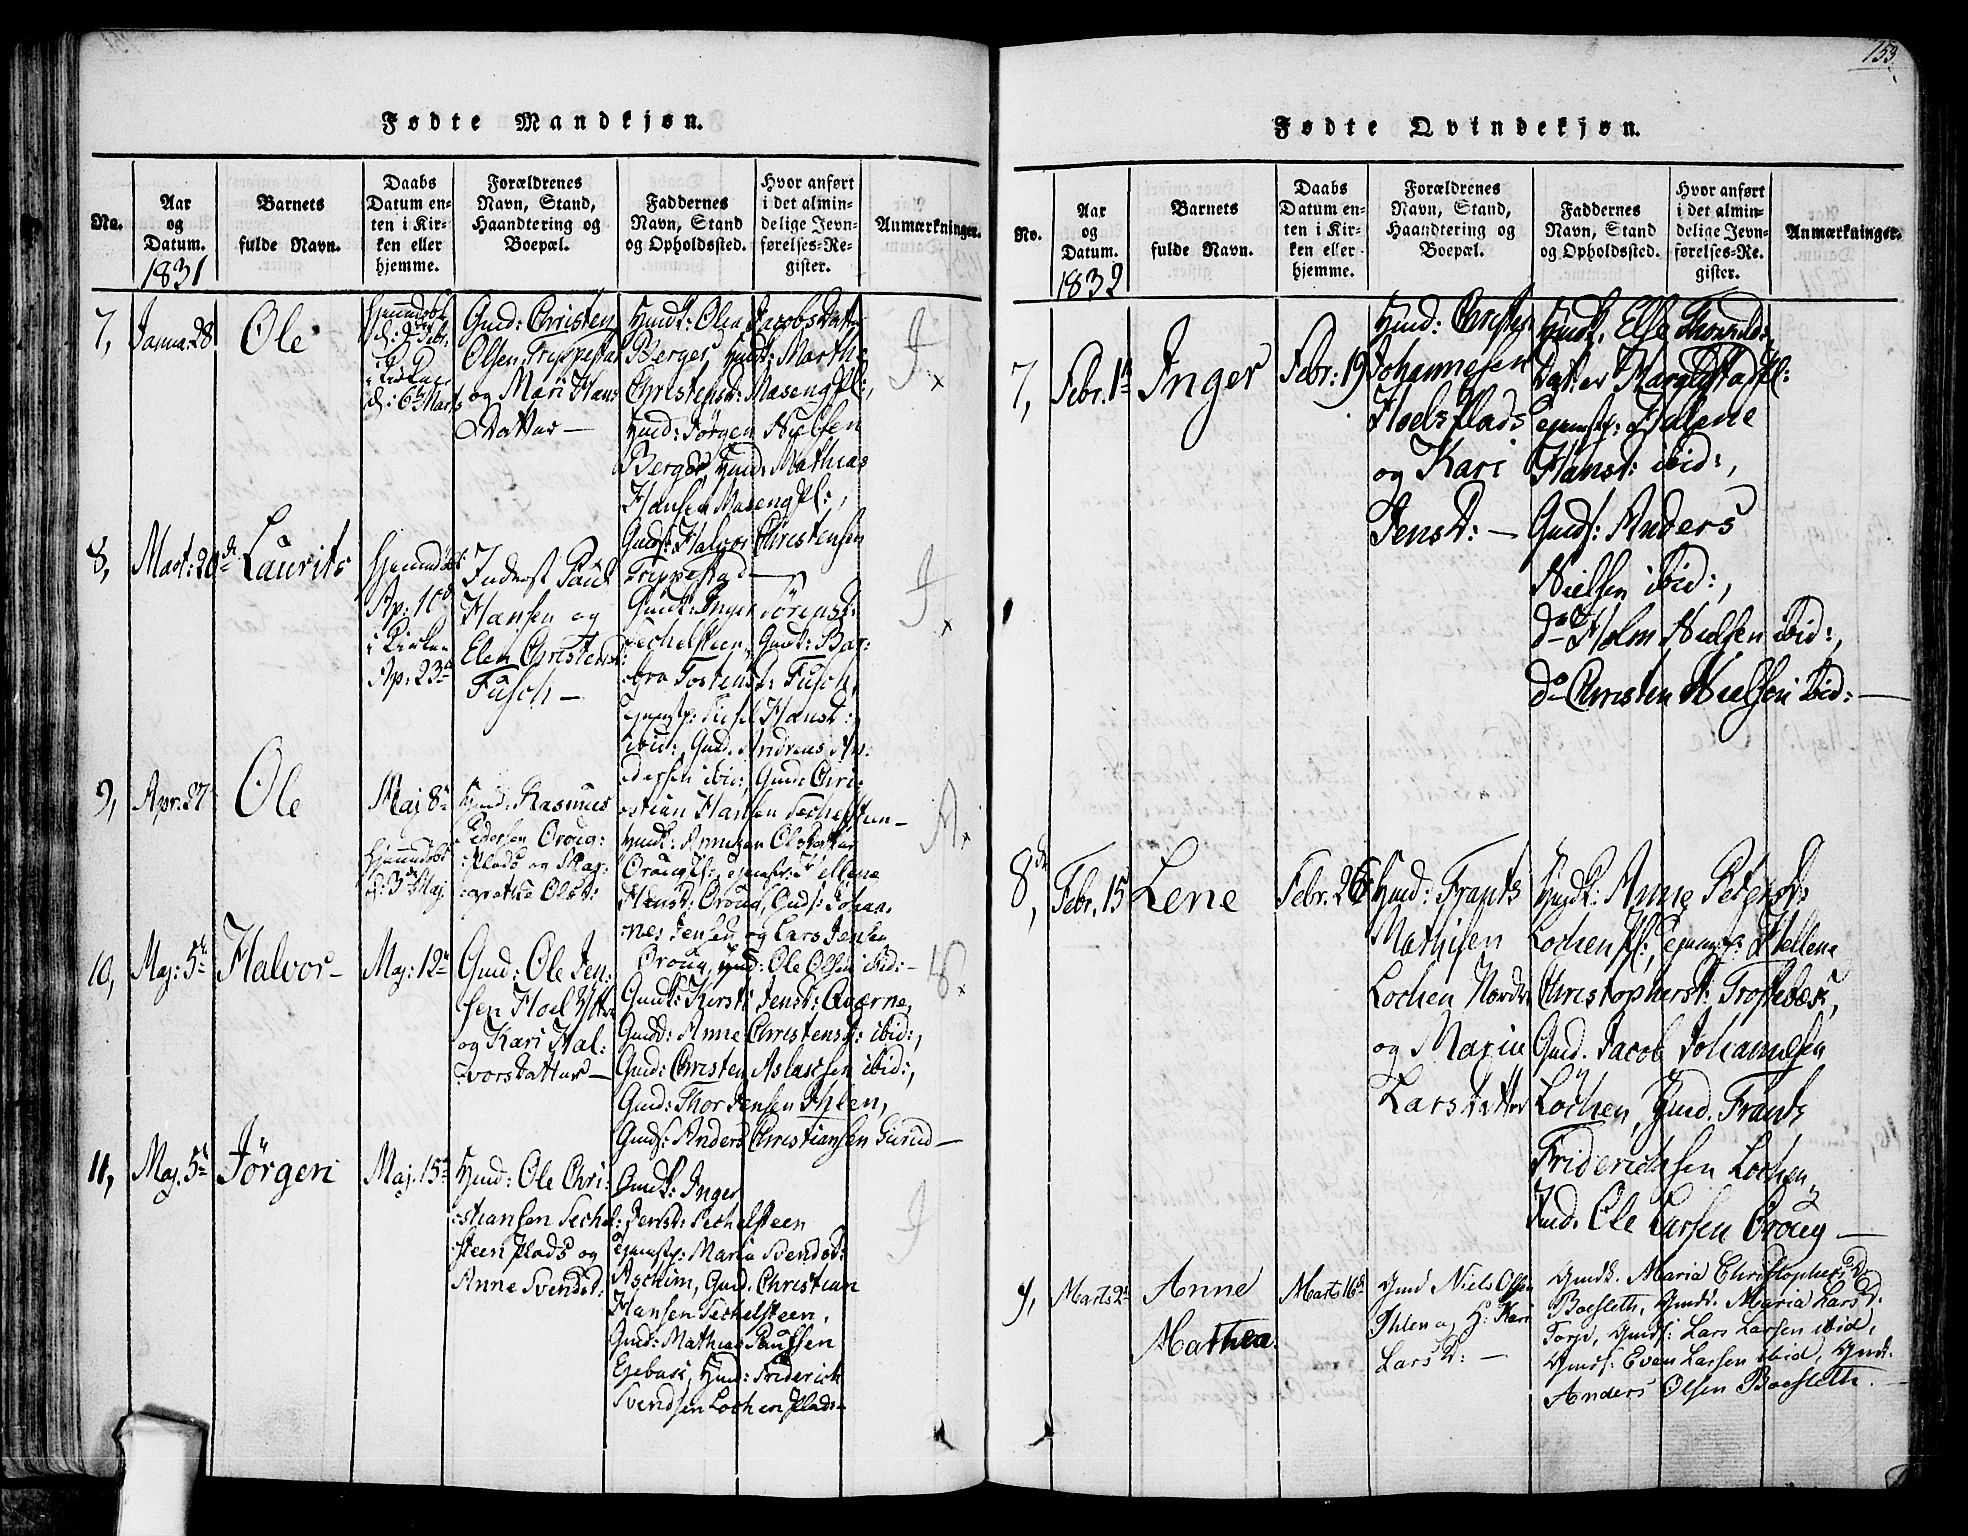 153.
Fødte Mandkjøn.
No.
Aar
og
Datum.
1831
Barnets
fulde Navn.
Daabs
Datum en-
ten i Kir-
ken eller
hjemme.
Forældrenes
Navn, Stand,
Haandtering og
Boepæl.
Faddernes
Navn, Stand
og Opholdssted.
Hvor anført
i det almin-
delige Jevn-
førelses-Re-
gister.
Anmærkninger.
7,
Janua: 28
Ole
Hjemmedøbt
d: 5 Febr.
i Kirken
d: 6 Marts
Gmd: Christen
Olsen Trippestad
og Mari Hans
Datter —
Hmdk: Olea Jacobsdatter
Berger, Hmdk: Marthe
Christensd: Masengpl:,
Hmd: Jörgen Nielsen
Berger, Hmd: Mathias
Hansen Masengpl:,
Gmds: Halvor Christensen
Trippestad —
8,
Mart: 20de
Laurits
Hjemmedøbt
Ap: 10
i Kirken
Ap: 23de
Inderst Paul
Hansen og
Elen Christensd:
Fusch —
Gmdk: Inger Sörensd:
Sechelsteen, Gmdk: Bar-
bra Tostensd: Fusch,
Hansd:
ibid:, Gmd. Andreas An-
dersen ibid:, Gmds: Chri-
stian Hansen Sechelsteen —
9,
Apr. 27
Ole
Maj 8de
Hjemmedøbt
d: 3 Maj
Hmd: Rasmus
Pedersen Oroug-
plads og Mar-
grethe Olsd:
Hmdk: Anniken Olsdatter
Orougpl:, Hellena
Hansd: Oroug, Gmds: Johan-
nes Jensen og Lars Jensen
Oroug, Hmd: Ole Olsen ibid: —
10,
Maj: 5te
Halvor —
Maj: 12te
Gmd: Ole Jen-
sen Hoel Yttre
og Kari Hal-
vorsdatter —
Gmdk: Kersti Jensd: Qværne,
Gmdd: Anne Christensd: ibid:,
Gmd: Christen Aslachsen ibid:,
Gmd: Thor Jensen Ihlen,
Gmds: Anders Christiansen Gurud —
11,
Maj. 5te
Jörgen
Maj. 15de
Hmd: Ole Chri-
stiansen Sechel-
steen plads og
Anne Svendsd:
Gmdk: Inger
Jensd: Sechelsteen
Maria Svendsd:
Aschim, Gmd. Christian
Hansen Sechelsteen,
Gmd: Mathias Paulsen
Egebæk, Hmd: Friderich
Svendsen Lochen plads —
Fødte Qvindekjøn.
No.
Aar
og
Datum.
1832
Barnets
fulde Navn.
Daabs
Datum en-
ten i Kir-
ken eller
hjemme.
Forældrenes
Navn, Stand,
Haandtering og
Boepæl.
Faddernes
Navn, Stand
og Opholdssted.
Hvor anført
i det almin-
delige Jevn-
førelses-Re-
gister.
Anmærkninger.
7,
Febr. 1te
Inger
Febr: 19
Hmd: Christen
Johannesen
Hoels plads
og Kari
Jensd: —
Hmdk. Else Thronds-
Datter
Halene
Hansd: ibid:,
Gmds: Anders
Nielsen ibid:,
do Holm Nielsen ibid:,
do Christen Nielsen ibid: —
8de,
Febr. 15
Lene
Febr. 26
Hmd: Frants
Mathisen
Lochen Nordre
og Maria
Larsdatter
Hmdk: Anne Petersd:
Lochenpl:, Hellene
Christophersd: Troskebæk,
Gmd. Jacob Johannesen
Lochen, Hmd. Frants
Friderichsen Lochen,
Ind. Ole Larsen Oroug —
9,
Marts 2
Anne
Mathea.
Marts 16
Gmd Niels Olsen
Ihlen og H: Kari
Lars D: —
Gmdk. Maria Christophers D:
Boesleth, Gmdd. Maria Lars D:
Torp, Gmds: Lars Larsen ibid,
Gmds: Even Larsen ibid, Gmds.
Anders Olsen Boesleth. —